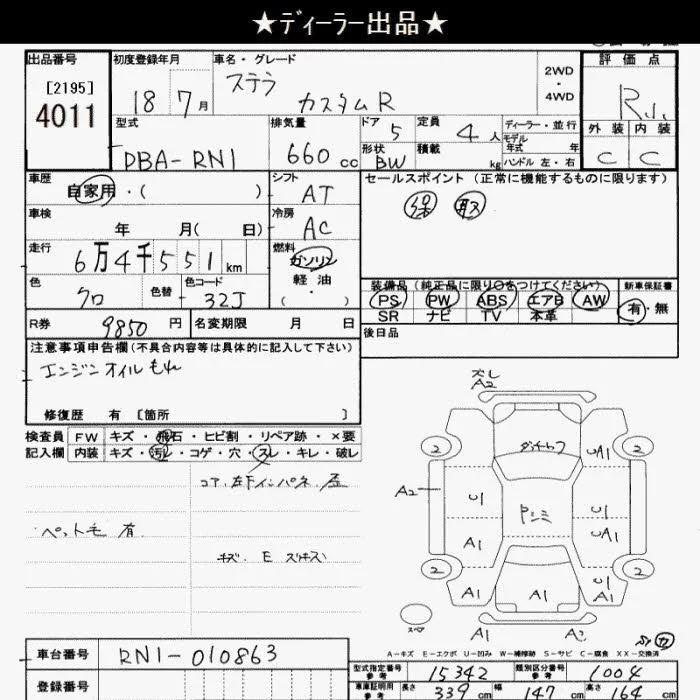 ★ディーラー出品★
出品番号 初度登録年月 車名・グレード 評価点
[2195]
4011
18 7月 ステラ カスタムR
2WD・4WD
外装 内装
C C
型式 排気量 ドア 定員 ディーラー・並行
DBA-RN1 660cc 5 4人
モデル年式 年
形状 BW 積載 kg ハンドル 左・右
車歴 自家用・( ) シフト AT
セールスポイント(正常に機能するものに限ります)
保 取
車検 年 月( 日) 冷房 AC
走行 6万4千551km 燃料 ガソリン
軽油・( )
色 クロ 色替 色コード 32J
装備品(純正品に限り○をつけてください) 新車保証書
PS PW ABS エアB AW 有・無
SR ナビ TV 本革
R券 9850円 名変期限 月 日 後日品
注意事項申告欄(不具合内容等は具体的に記入して下さい)
エンジンオイルもれ
修復歴 有 [箇所 ]
検査員 FW キズ・飛石・ヒビ割・リペア跡・×要
記入欄 内装 キズ・汚レ・コゲ・穴・スレ・キレ・破レ
コア、左下インパネ 歪
ペット毛 有
キズ E
ズレ
A2
2 2
A1
A2
U1 U1
A1
A1
2 2
A1 A1 U1
A1
スペア
A1 A2
A-キズ E-エクボ U-凹み W-補修跡 S-サビ C-腐食 XX-交換済
車台番号 RN1-010863
登録番号
型式指定番号 参考 15342 類別区分番号 参考 1004
車庫証明用 参考 長さ 339cm 幅 147cm 高さ 164cm